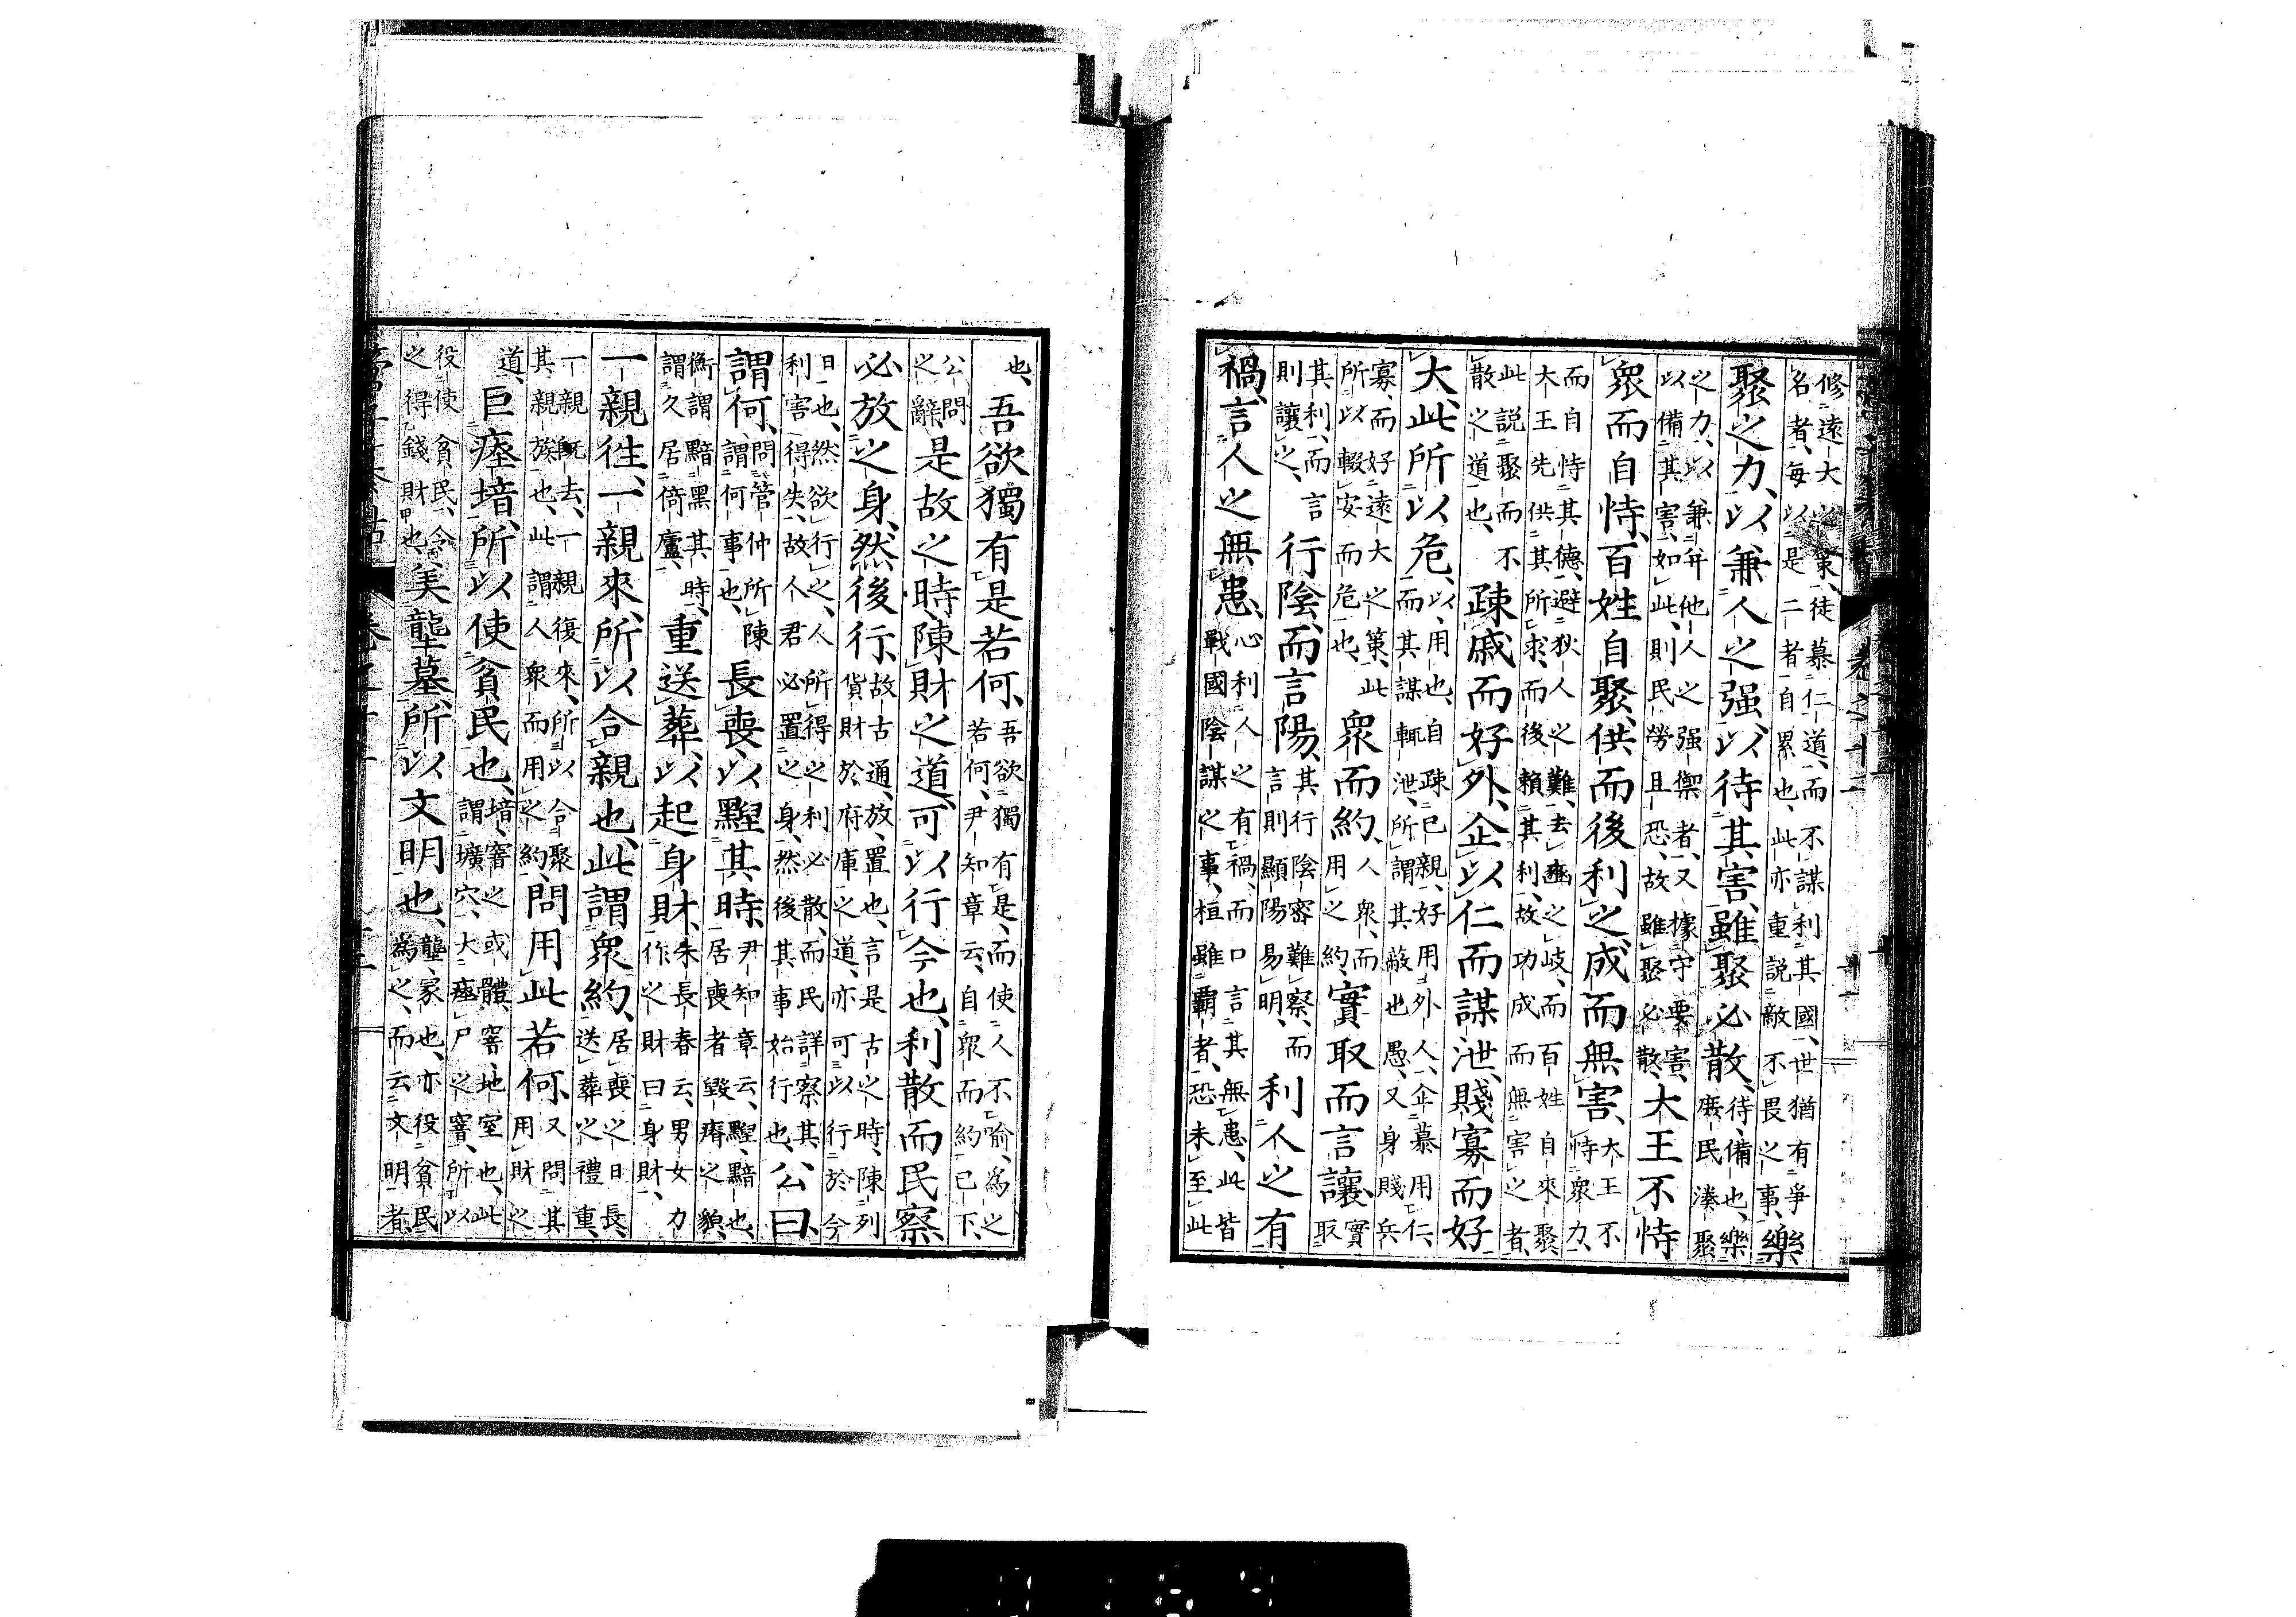 修遠大之策、徒慕仁道、而不謀利其國、世猶有爭
名者、每以是二者自累也、此亦重説敵不畏之事、樂
聚之力、以兼人之强、以待其害、雖聚必散、待、備也、樂
廣民湊聚
之力、以兼幷他人之强禦者、又據守要害、
以備其害、如此、則民勞且恐、故雖聚必散、大王不恃
衆而自恃、百姓自聚、供而後利之、成而無害、大王不
恃衆力、
而自恃其德、避狄人之難、去豳之岐、而百姓自來聚
大王先供其所求、而後賴其利、故功成而無害之者、
此説聚而不
散之道也、疎戚而好外、企以仁而謀泄、賤寡而好
大、此所以危、以、用也、自疎已親、好用外人、企慕用仁、
而其謀輒泄、所謂其敝也愚、又身賤兵
寡、而好遠大之策、此
所以輟安而危也、衆而約、人衆、而
用之約、實取而言讓、實
取
其利、而言
則讓之、行陰、而言陽、其行陰密難察、而
言則顯陽易明、利人之有
禍、言人之無患、心利人之有禍、而口言其無患、此皆
戰國陰謀之事、桓雖霸者、恐未至此
也、吾欲獨有是若何、吾欲獨有是、而使人不喻、爲之
若何、尹知章云、自衆而約已下、
公問
之辭、是故之時、陳財之道、可以行、今也、利散而民察、
必放之身、然後行、故古通、放、置也、言是古之時、陳列
貨財於府庫之道、亦可以行於今
日也、然欲行之、人所得之利必散、而民詳察其
利害得失、故人君必置之身、然後其事始行也、公曰、
謂何、問管仲所陳
謂何事也、長喪、以黫其時、尹知章云、黫、黯也、
居喪者毀瘠之貌、
衡謂黯黑其時、
謂久居倚廬、重送葬、以起身財、朱長春云、男女力
作之財曰身財、
一親往、一親來、所以合親也、此謂衆約、居喪之日長、
送葬之禮重、
一親既去、一親復來、所以合聚
其親族也、此謂人衆而用之約、問、用此若何、又問其
用財之
道、巨瘞堷、所以使貧民也、堷、窨之或體、窨、地室也、此
謂壙穴、大瘞尸之窨、所以
役使貧民、令
之得錢財也、美壟墓、所以文明也、壟、冢也、亦役貧民
爲之、而云文明者、